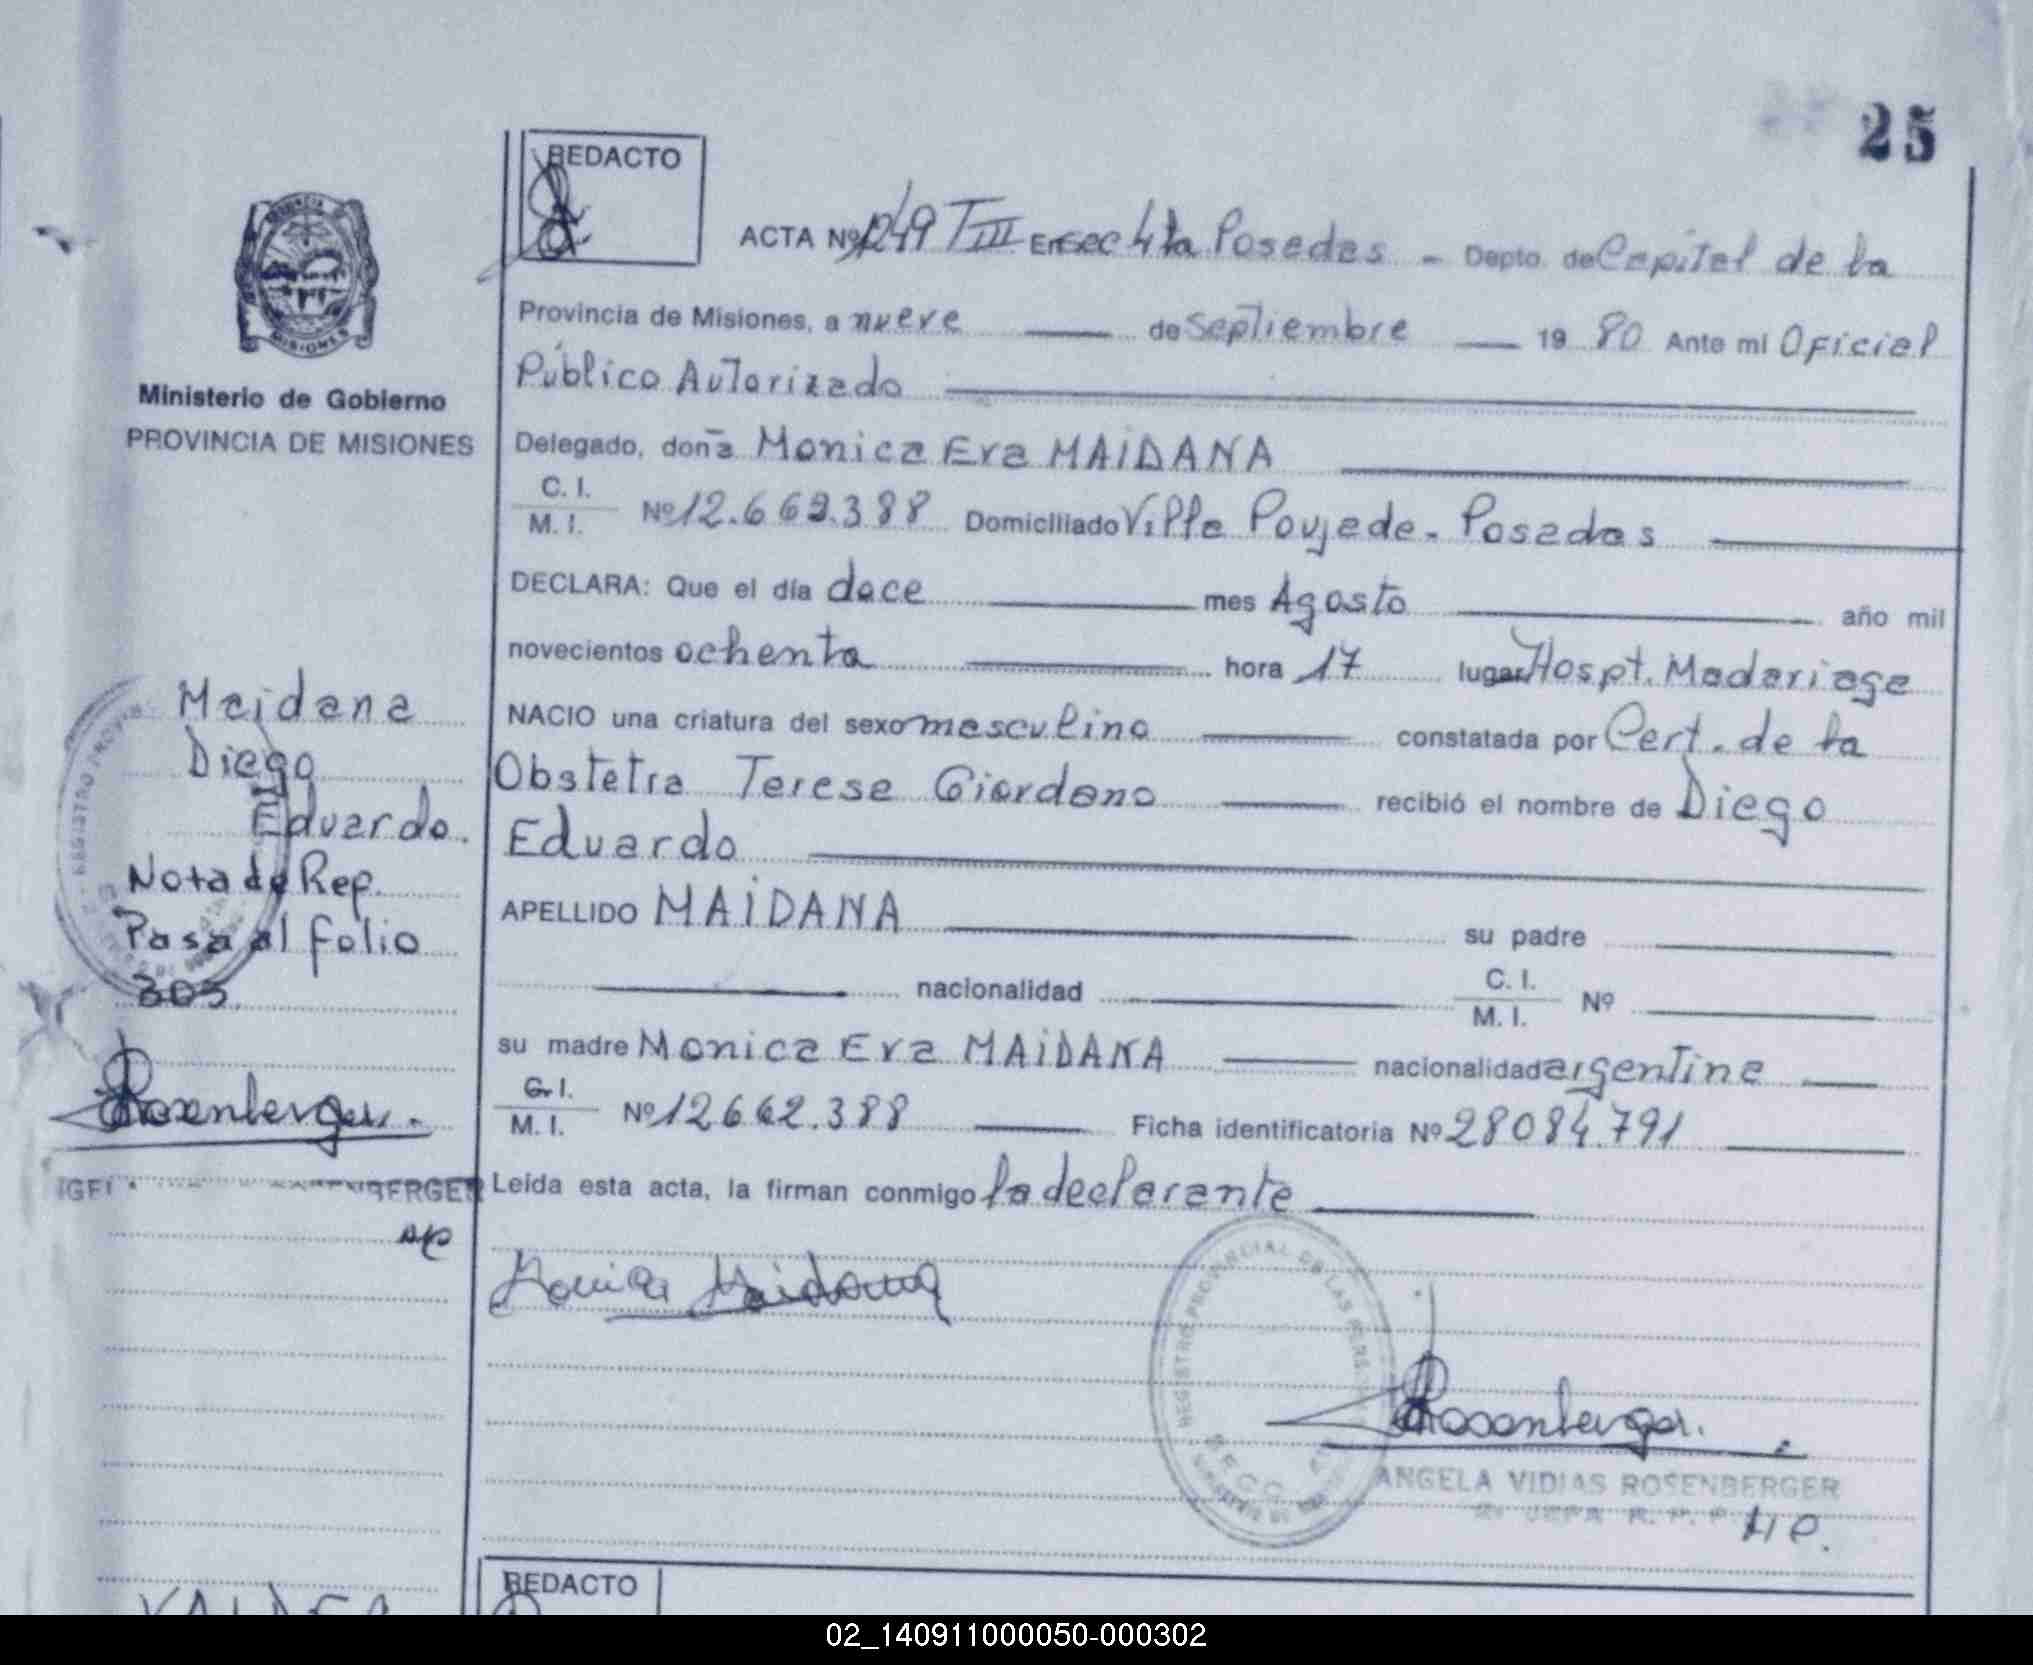 25
REDACTO
ACTA Nº 1249 T III En Sec 4ta Posadas - Depto. de Capital de la
Provincia de Misiones, a nueve de Septiembre 19 80 Ante mi Oficial
Público Autorizado
Ministerio de Gobierno
PROVINCIA DE MISIONES
Delegado, doña Monica Eva MAIDANA
C. I.
M. I. Nº 12.662.388 Domiciliado Villa Poujade. Posadas
DECLARA: Que el día doce mes Agosto año mil
novecientos ochenta hora 17 lugar Hospt. Madariaga
NACIO una criatura del sexo masculino constatada por Cert. de la
Obstetra Teresa Giordano recibió el nombre de Diego
Eduardo
APELLIDO MAIDANA su padre
nacionalidad C. I.
M. I. Nº
su madre Monica Eva MAIDANA nacionalidad argentina
C. I.
M. I. Nº 12662.388 Ficha identificatoria Nº 28084.791
Leida esta acta, la firman conmigo la declarante
Maidana
Diego
Eduardo.
Nota de Rep.
Pasa al folio
305.
Rosenberger.
BERGER
Monica Maidana
REGISTRO PROVINCIAL DE LAS PERS
Rosenberger.
ANGELA VIDIAS ROSENBERGER
JEFA R. P. P.
REDACTO
02_140911000050-000302